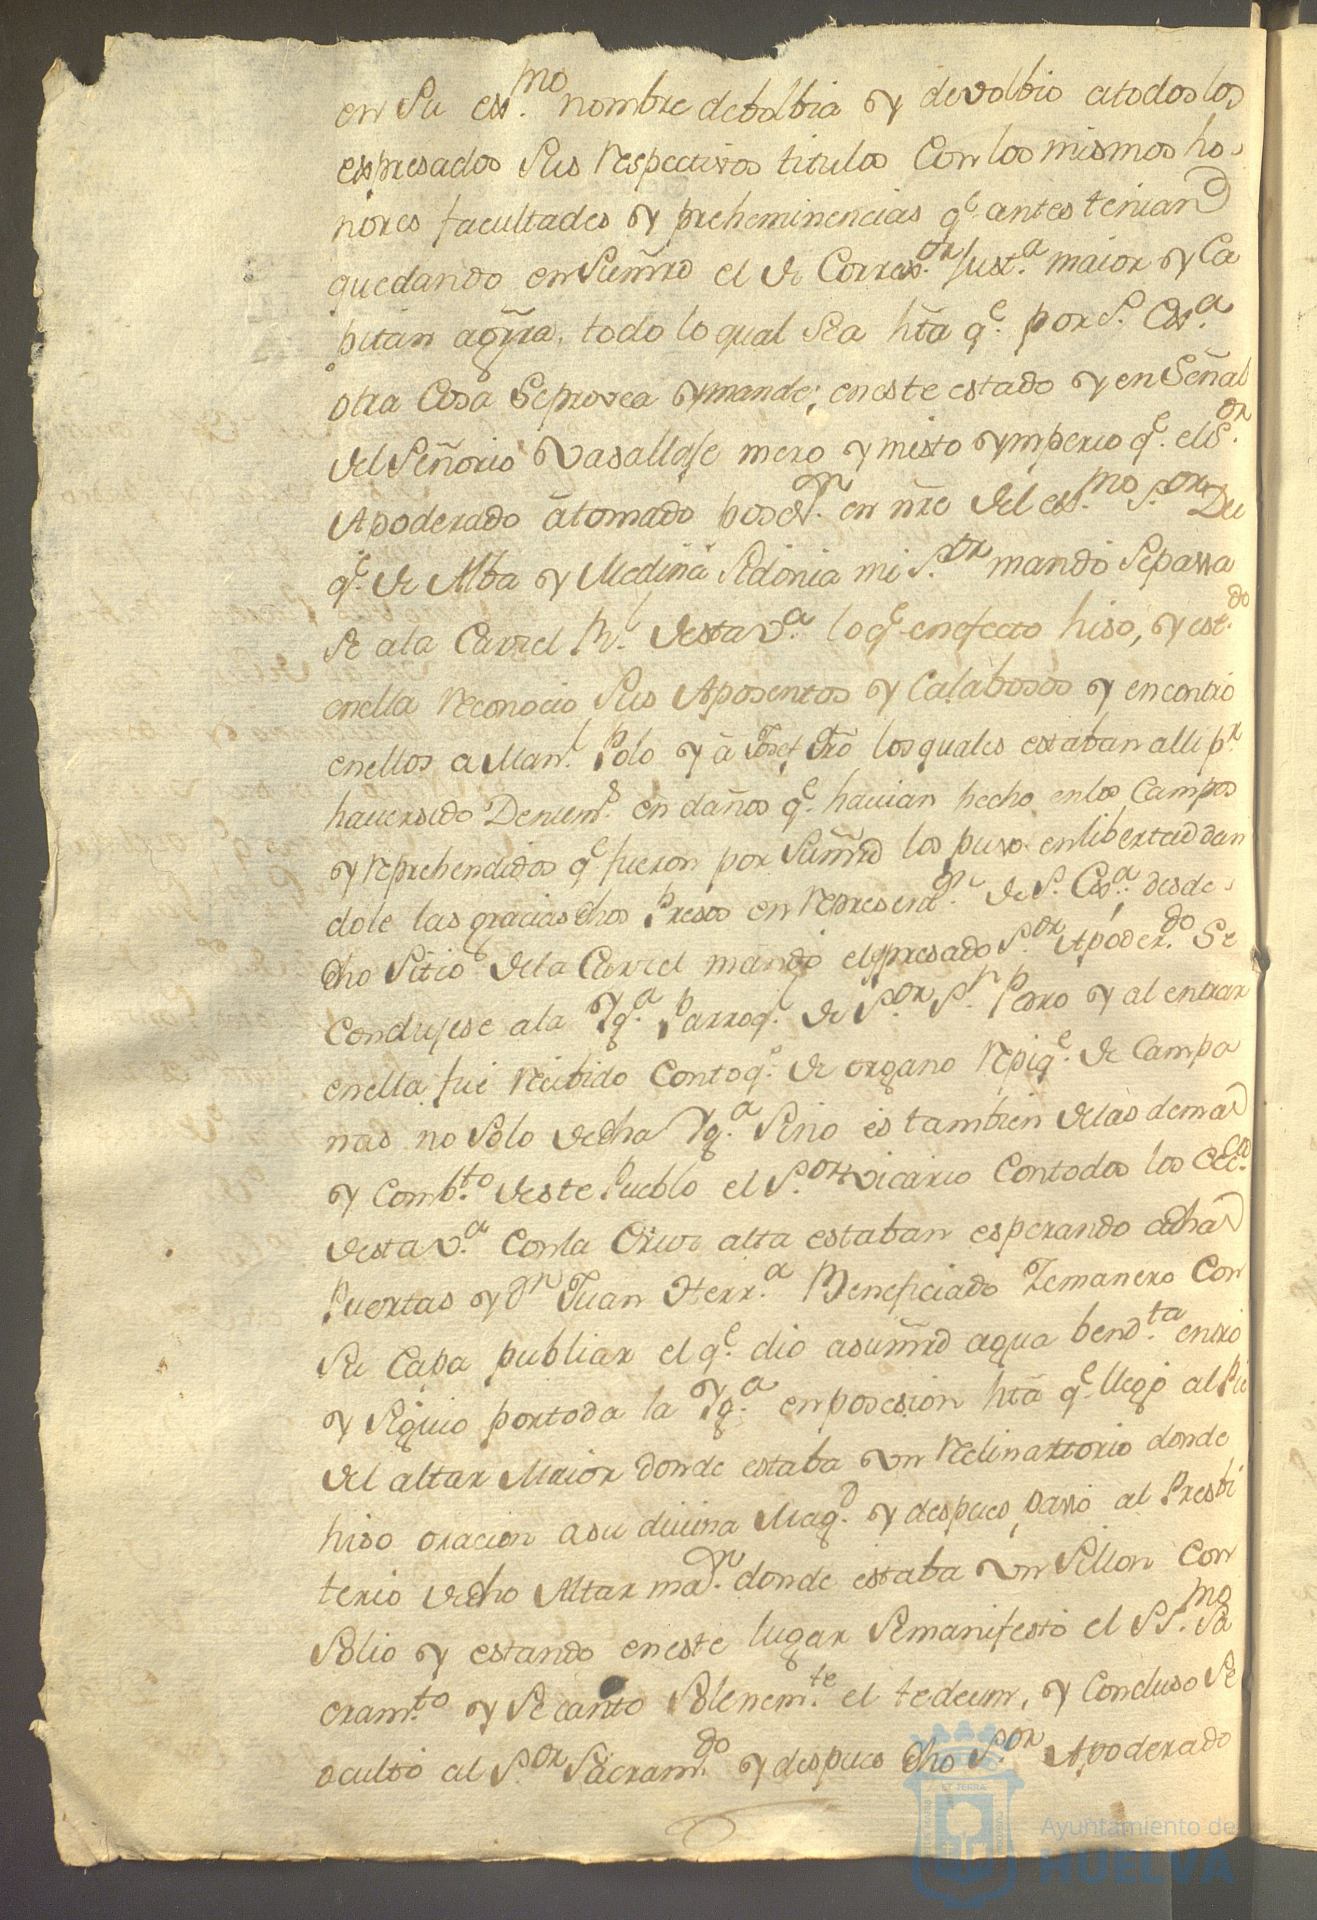 en Su ex.mo nombre debolbia y devolbio atodos los
expresados Sus respectivos titulos Con los mismos ho-
nores facultades y preheminencias q.e antes tenian
quedando en Sumrd el de Correx.or Just.a maior y Ca
pitan aGrra. todo lo qual sea hta q.e por S. Ex.a
otra Cosa Se provea y mande; en este estado y en Señal
del Señorio Vasallaje mero y misto ymperio q.e el S.or
Apoderado à tomado poses.n en nre del ex.mo S.or Du
q.e de Alba y Medina Sidonia mi S.or mandó Sepassa
se ala Carzel Rl. desta V.a lo q.e en efecto hiso, y est.do
enella reconocio Sus Aposentos y Calabosos y encontró
enellos a Man.l Polo y à Josef los quales estaban alli p.r
haver sido en daños q.e havian hecho enlos Campos
y reprehendidos q.e fueron por Sumrd los puso en libertad dan
dole las gracias dhos Presos en represent.n de S. Ex.a desde
dho Sitio dela Carzel mandó el expresado S.or Apoder.do Se
Condujese ala Yg.a Parroq. de S.or S.n Pedro y al entrar
enella fué recibido Contoq.e de organo repiq.e de Campa
nas no Solo dedha Yg.a Sino es tambien delas demas
y Comb.to deste Pueblo el S.or vicario Contodos los Ecc.cos
desta V.a Conla Cruz alta estaban esperando adhas
Puertas y Dn Juan Herr.a Beneficiado Semanero Con
Su Capa publiar el q.e dio asumrd agua bend.ta entró
y Siguio portoda la Yg.a en posesion hta q.e llegó al Pie
del altar Maior donde estaba un reclinattorio donde
hiso oracion asu divina Mag.d y despues passó al Presbi
terio dedho Altar ma.r donde estaba un Sillon Con
Solio y estando eneste lugar Semanifestó el SS.mo Sa
cram.to y Se cantó Solenem.te el tedeum, y Concluso Se
ocultó al S.or Sacram.do y despues dho S.or Apoderado
Ayuntamiento de
HUELVA